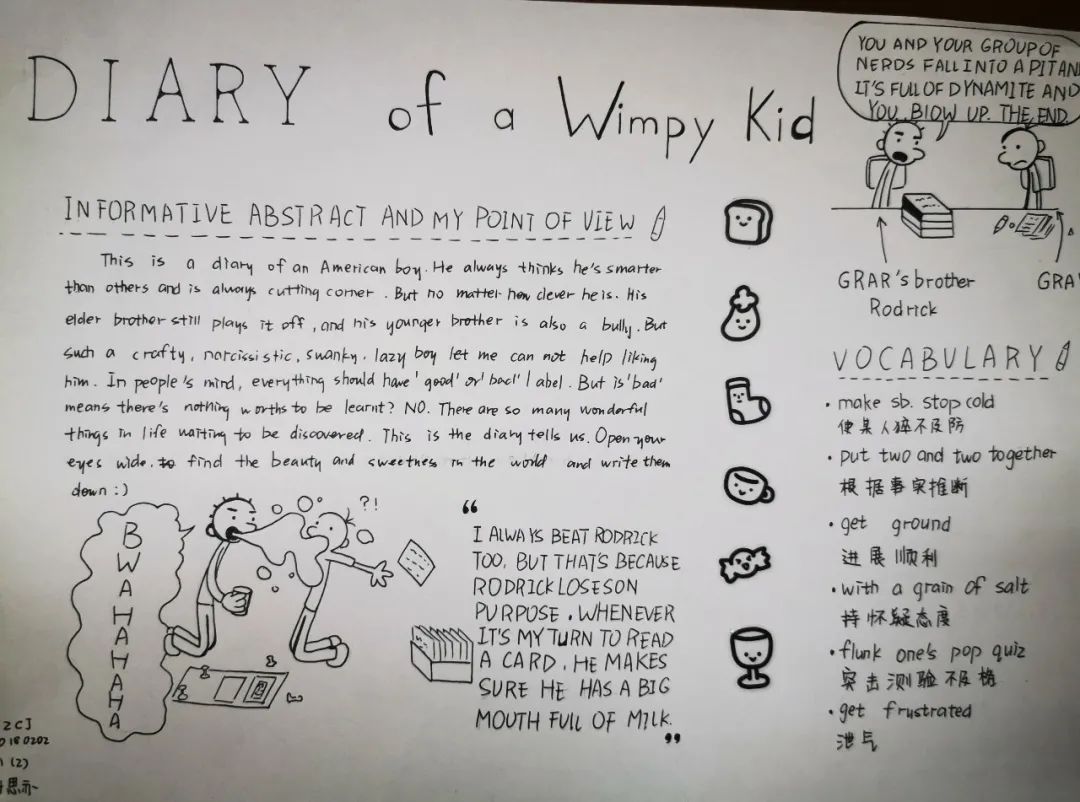 DIARY of a Wimpy Kid
YOU AND YOUR GROUP OF
NERDS FALL INTO A PIT AND
IT'S FULL OF DYNAMITE AND
YOU BLOW UP. THE END.
GRAR's brother
Rodrick
GRA
INFORMATIVE ABSTRACT AND MY POINT OF VIEW
This is a diary of an American boy. He always thinks he's smarter
than others and is always cutting corner. But no matter how clever he is. His
elder brother still plays it off, and his younger brother is also a bully. But
such a crafty, narcissistic, swanky, lazy boy let me can not help liking
him. In people's mind, everything should have 'good' or 'bad' label. But is 'bad'
means there's nothing worths to be learnt? NO. There are so many wonderful
things in life waiting to be discovered. This is the diary tells us. Open your
eyes wide. to find the beauty and sweetness in the world and write them
down :)
BWAHAHAHA
?!
“
I ALWAYS BEAT RODRICK
TOO, BUT THAT'S BECAUSE
RODRICK LOSES ON
PURPOSE. WHENEVER
IT'S MY TURN TO READ
A CARD, HE MAKES
SURE HE HAS A BIG
MOUTH FULL OF MILK.
”
VOCABULARY
• make sb. stop cold
使某人猝不及防
• put two and two together
根据事实推断
• get ground
进展顺利
• with a grain of salt
持怀疑态度
• flunk one's pop quiz
突击测验不及格
• get frustrated
泄气
2CJ
0180202
(2)
思